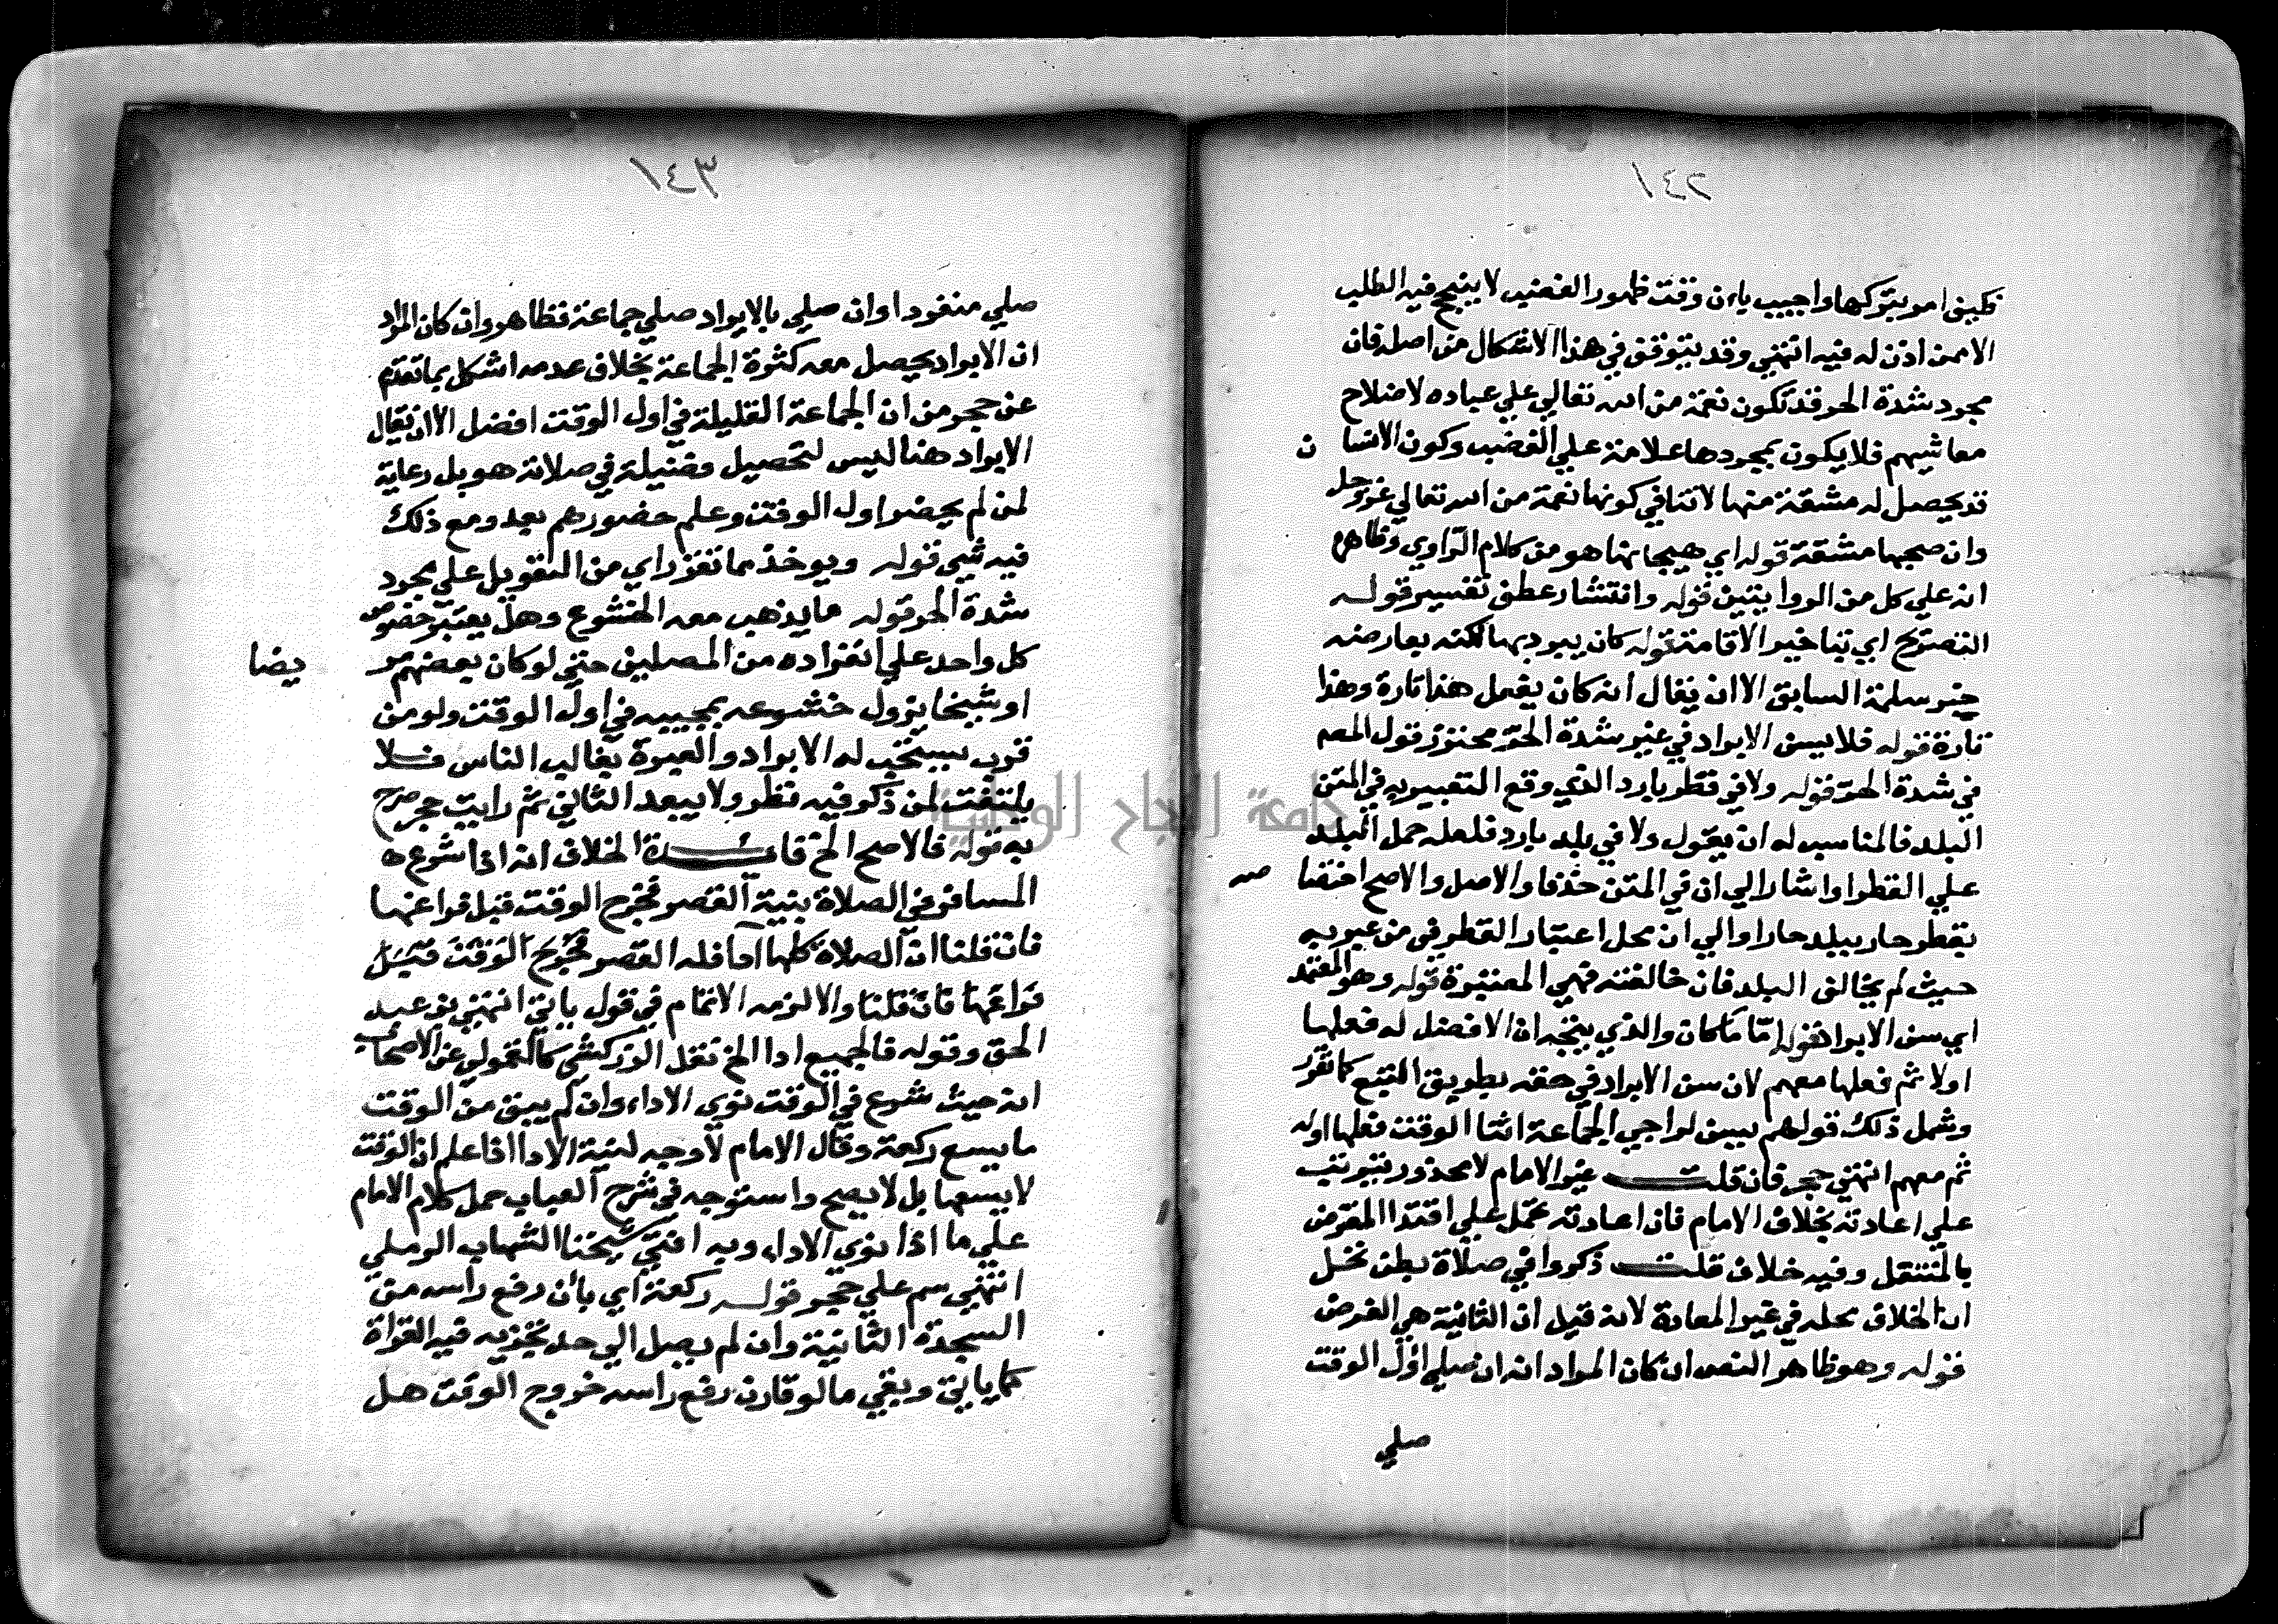 ٢٤١
فكيف امر بتركها واجيب بان وقت ظهور الغضب لا ينجح فيه الطلب
الا ممن اذن له فيه انتهي وقد يتوقف في هذا الاشكال من اصله فان
مجرد شدة الحر قد تكون نعمة من الله تعالي علي عباده لاصلاح
معاشهم فلا يكون مجردها علامة علي الغضب وكون الانسا ن
قد يحصل له مشقة منها لا تنافي كونها نعمة من الله تعالي عز وجل
وان صحبها مشقة قوله اي هيجانها هو من كلام الراوي وظاهره
انه علي كل من الروايتين قوله وانتشار عطف تفسير قولـــه
التصريح اي بتاخير الاقامة قوله كان يبرد بها لكنه يعارضه
خبر سلمة السابق الا ان يقال انه كان يفعل هذا تارة وهذا
تارة قوله فلا يسن الابراد في غير شدة الحر محترز قول المص
في شدة الحر قوله ولا في قطر بارد الذي وقع التعبير به في المتن
البلد فالمناسب له ان يقول ولا في بلد بارد فلعله حمل البلد
علي القطر او اشار الي ان في المتن حذفا والاصل والاصح اختصا صه
بقطر حار ببلد حار او الي ان محل اعتبار القطر في من عبر به
حيث لم يخالف البلد فان خالفته فهي المعتبرة قوله وهو المعتمد
اي سن الابراد قوله امّا مَا كان والذي يتجه ان الافضل له فعلها
اولا ثم فعلها معهم لان سن الابراد في حقه بطريق التبع كما تقرر
وشمل ذلك قولهم يسن لراجي الجماعة اثنا الوقت فعلها اوله
ثم معهم انتهي حجر فان قلت غير الامام لا محذور يترتب
علي اعادته بخلاف الامام فان اعادته تحمل علي اقتدا المفترض
بالمتنفل وفيه خلاف قلت ذكروا في صلاة بطن نخل
ان الخلاف محله في غير المعادة لانه قيل ان الثانية هي الفرض
قوله وهو ظاهر النص ان كان المراد انه ان صلي اول الوقت
صلي
٣٤١
صلي منفردا وان صلي بالابراد صلي جماعة فظاهر وان كان المراد
ان الابراد يحصل معه كثرة الجماعة بخلاف عدمه اشكل بما تقدم
عن حجر من ان الجماعة القليلة في اول الوقت افضل الا ان يقال
الابراد هنا ليس لتحصيل فضيلة في صلاته هو بل رعاية
لمن لم يحضر اول الوقت وعلم حضورهم بعد ومع ذلك
فيه شي قوله ويوخذ مما تقرر اي من التعويل علي مجرد
شدة الحر قوله ما يذهب معه الخشوع وهل يعتبر خصوص
كل واحد علي انفراده من المصلين حتي لو كان بعضهم مر يضا
او شيخا يزول خشوعه بمجييه في اول الوقت ولو من
قرب يستحب له الابراد والعبرة بغالب الناس فـــلا
يلتفت لمن ذكر فيه نظر ولا يبعد الثاني ثم رايت حجر صرح
به قوله فالاصح الخ فائـــدة الخلاف انه اذا شرع ه
المسافر في الصلاة بنية القصر فخرج الوقت قبل فراغها
فان قلنا ان الصلاة كلها اداً فله القصر فخروج الوقت قبل
فراغها فان قلنا والا لزمه الاتمام في قول ياتي انتهي بن عبد
الحق وقوله فالجميع ادا الخ نقل الزركشي كالقمولي عن الاصحاب
انه حيث شرع في الوقت نوي الاداء وان لم يبق من الوقت
ما يسع ركعة وقال الامام لا وجه لنية الادا اذا علم ان الوقت
لا يسعها بل لا يصح واستوجه في شرح العباب حمل كلام الامام
علي ما اذا نوي الاداء وبه افتي شيخنا الشهاب الرملي
انتهي سم علي حجر قولـــه ركعة اي بان رفع راسه من
السجدة الثانية وان لم يصل الي حد تجزيه فيه القراة
كما ياتي وبقي ما لو قارن رفع راسه خروج الوقت هـل